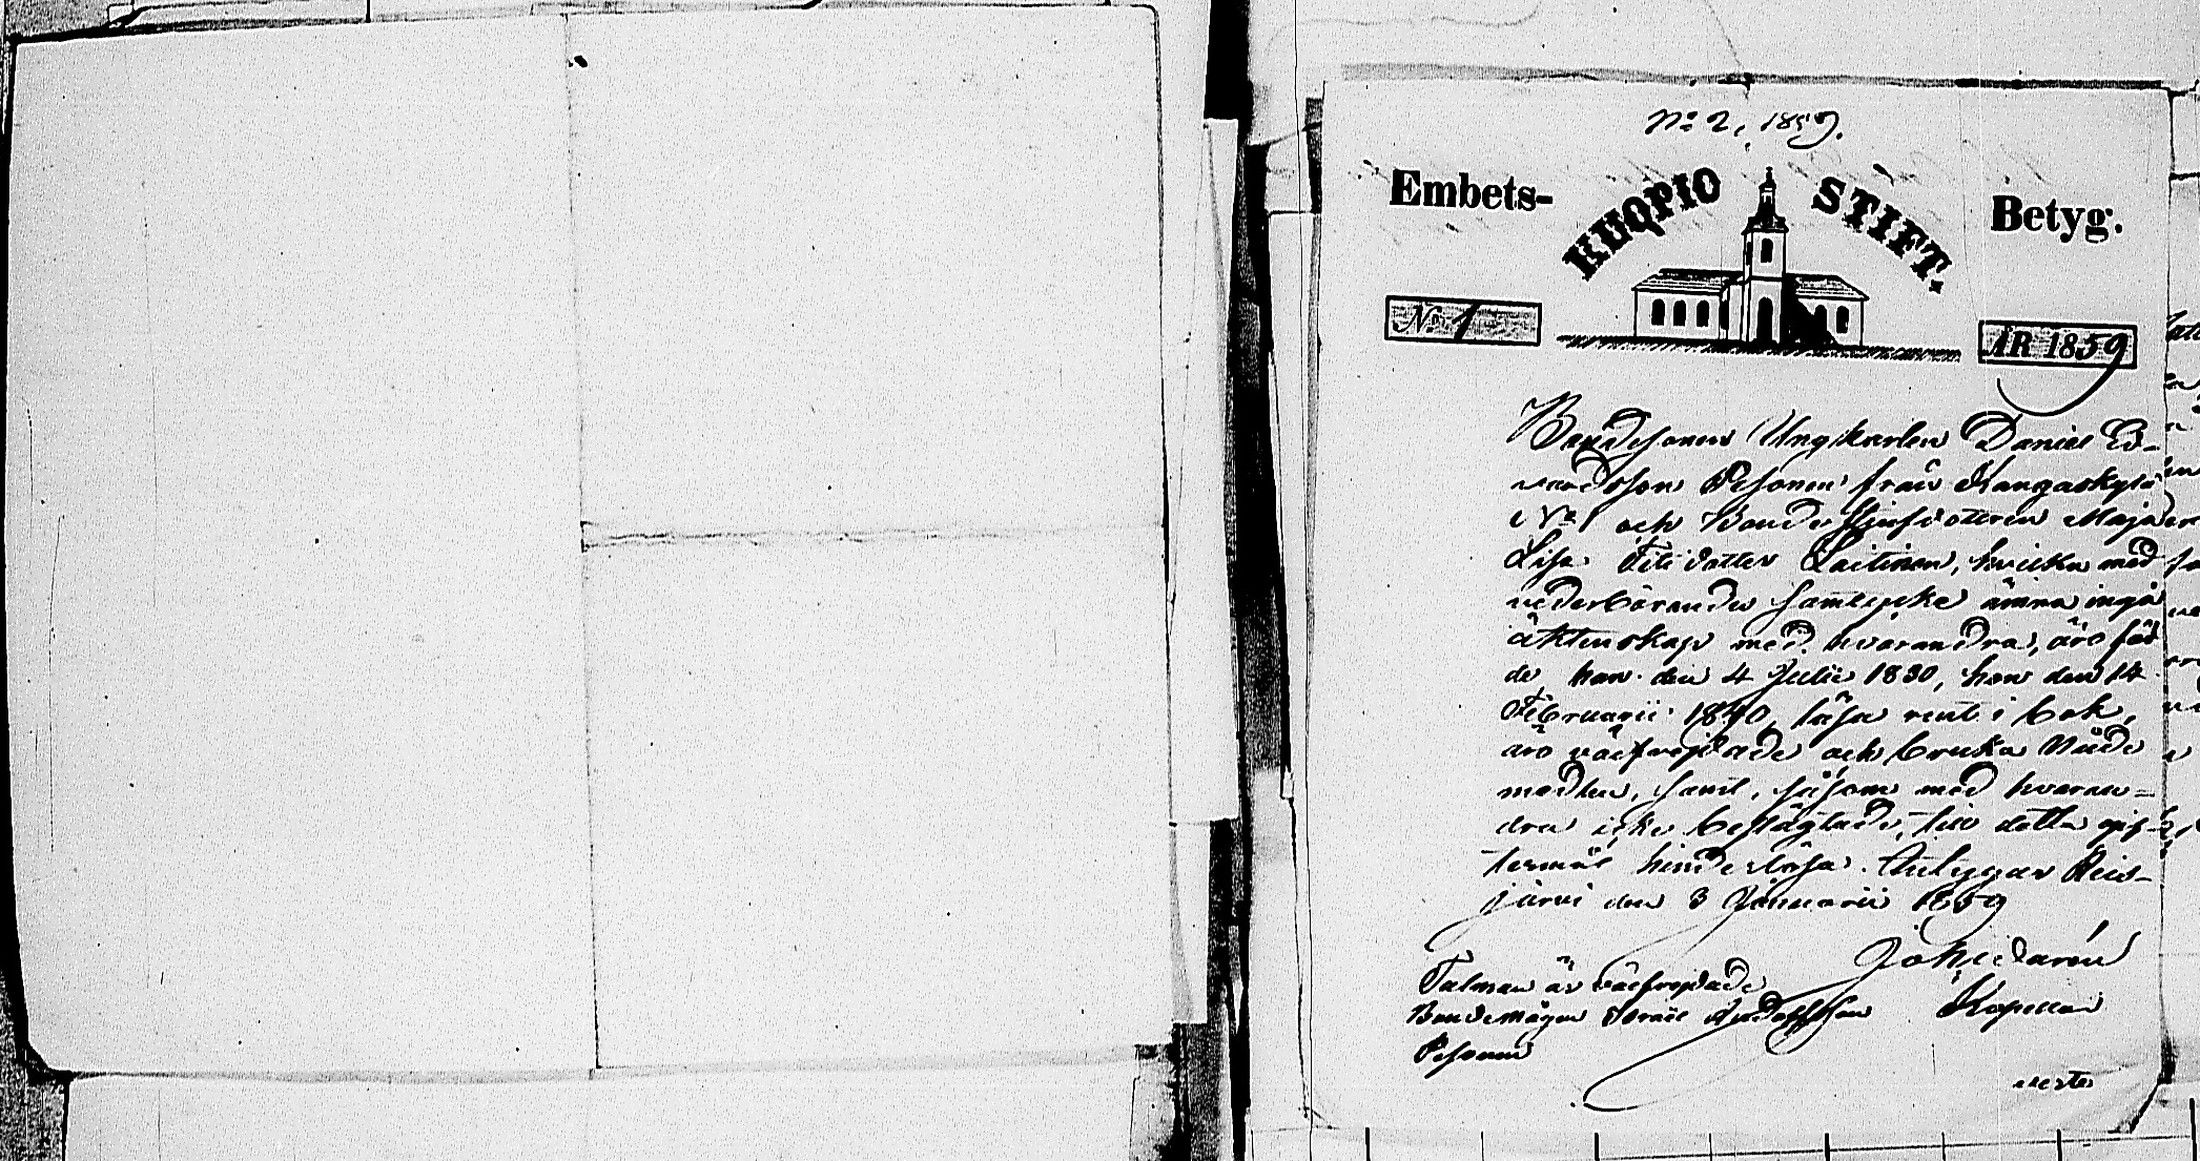 No 2, 1859.
Embets- KUOPIO STIFT. Betyg.
No 1
ÅR 1859
Bondesonen Ungkarlen Daniel Ed-
vardsson Pesonen från Kangaskylä
No 1 och Bonde Styfdotteren Maja
Lisa Fetidotter Laitinen, hvilka med
vederbörandes samtycke ämna ingå
äktenskap med hvarandra, äro föd
de han den 4 Julii 1830, hon den 14
Februarii 1840, läsa rent i bok,
äro välfrejdade och bruka Nåde
medlen, samt, såsom med hvaran-
dra icke beslägtade, till detta gif-
termål hinderlösa. Intygar Reis-
järvi den 3 Januarii 1859
Joh. Hidarén
Talman är välfrejdade
Bondemågen Israël Kapellan
Pesonen
verte